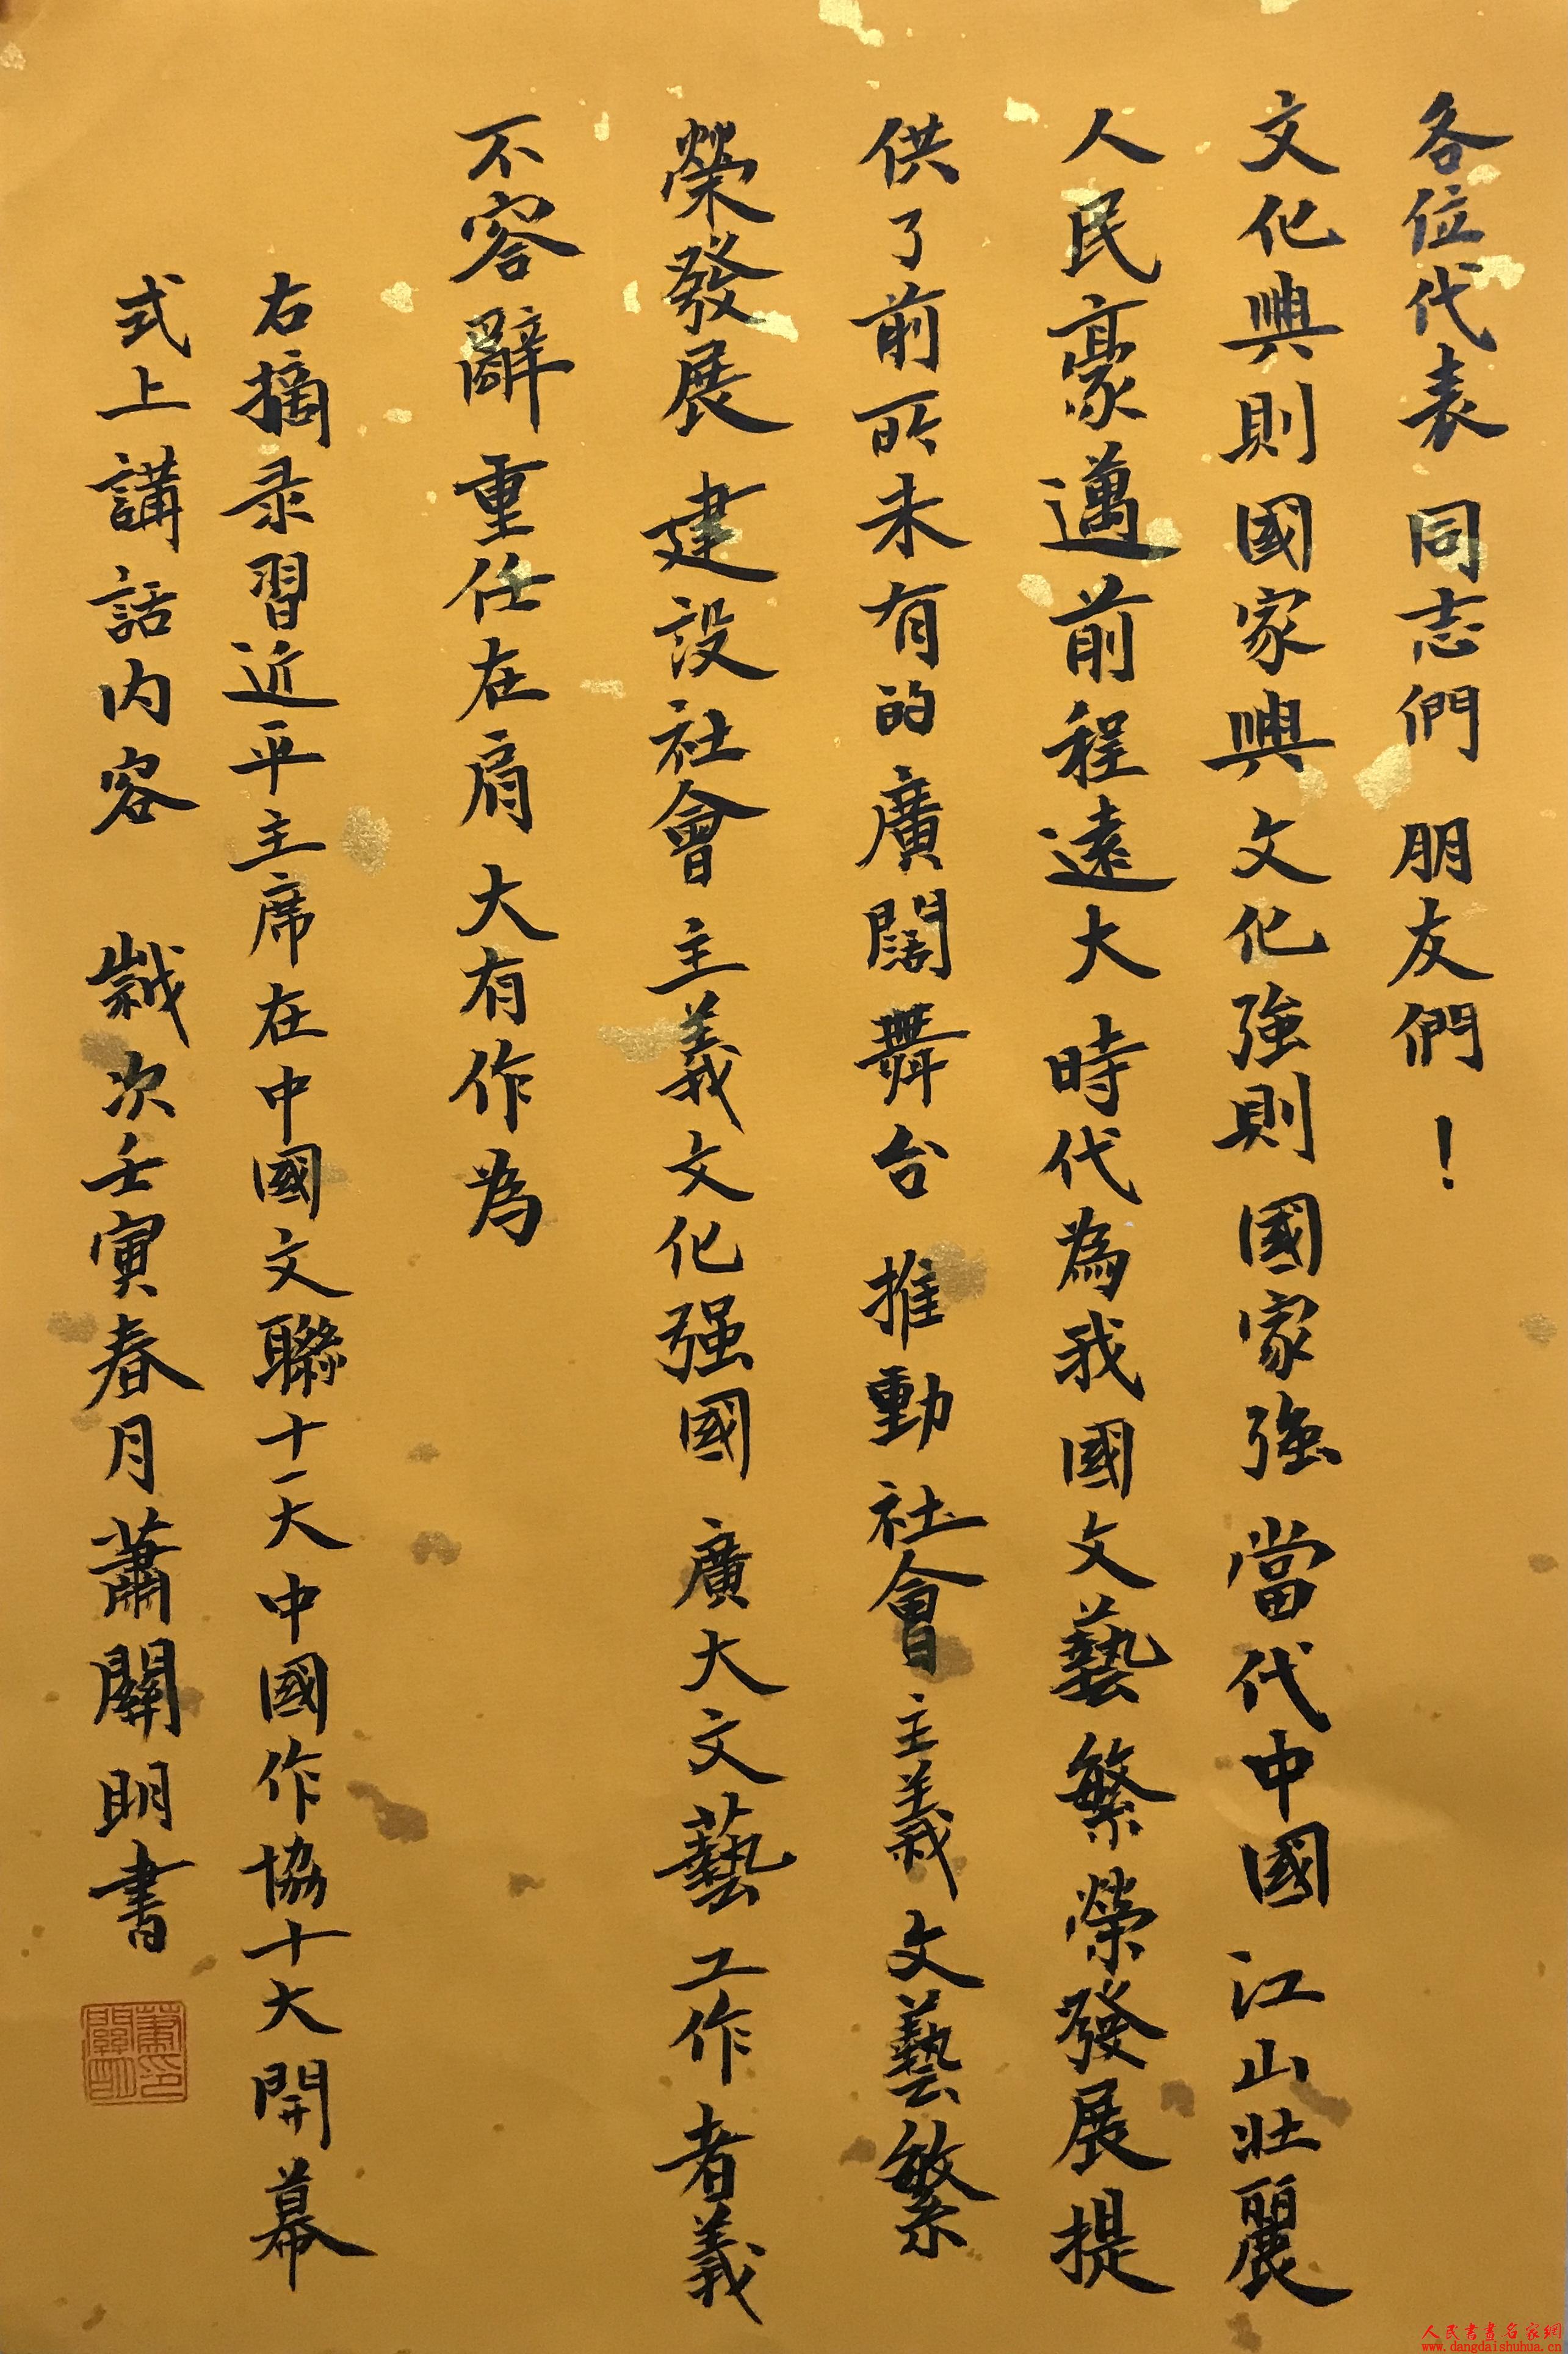 各位代表同志們朋友們！
文化興則國家興文化強則國家強當代中國江山壯麗
人民豪邁前程遠大時代為我國文藝繁榮發展提
供了前所未有的廣闊舞台推動社會主義文藝繁
榮發展建設社會主義文化强國廣大文藝工作者義
不容辭重任在肩大有作為
右摘录習近平主席在中國文聯十一大中國作協十大開幕
式上講話内容歲次壬寅春月蕭關明書
蕭關明印
人民书画名家網
www.dangdaishuhua.cn